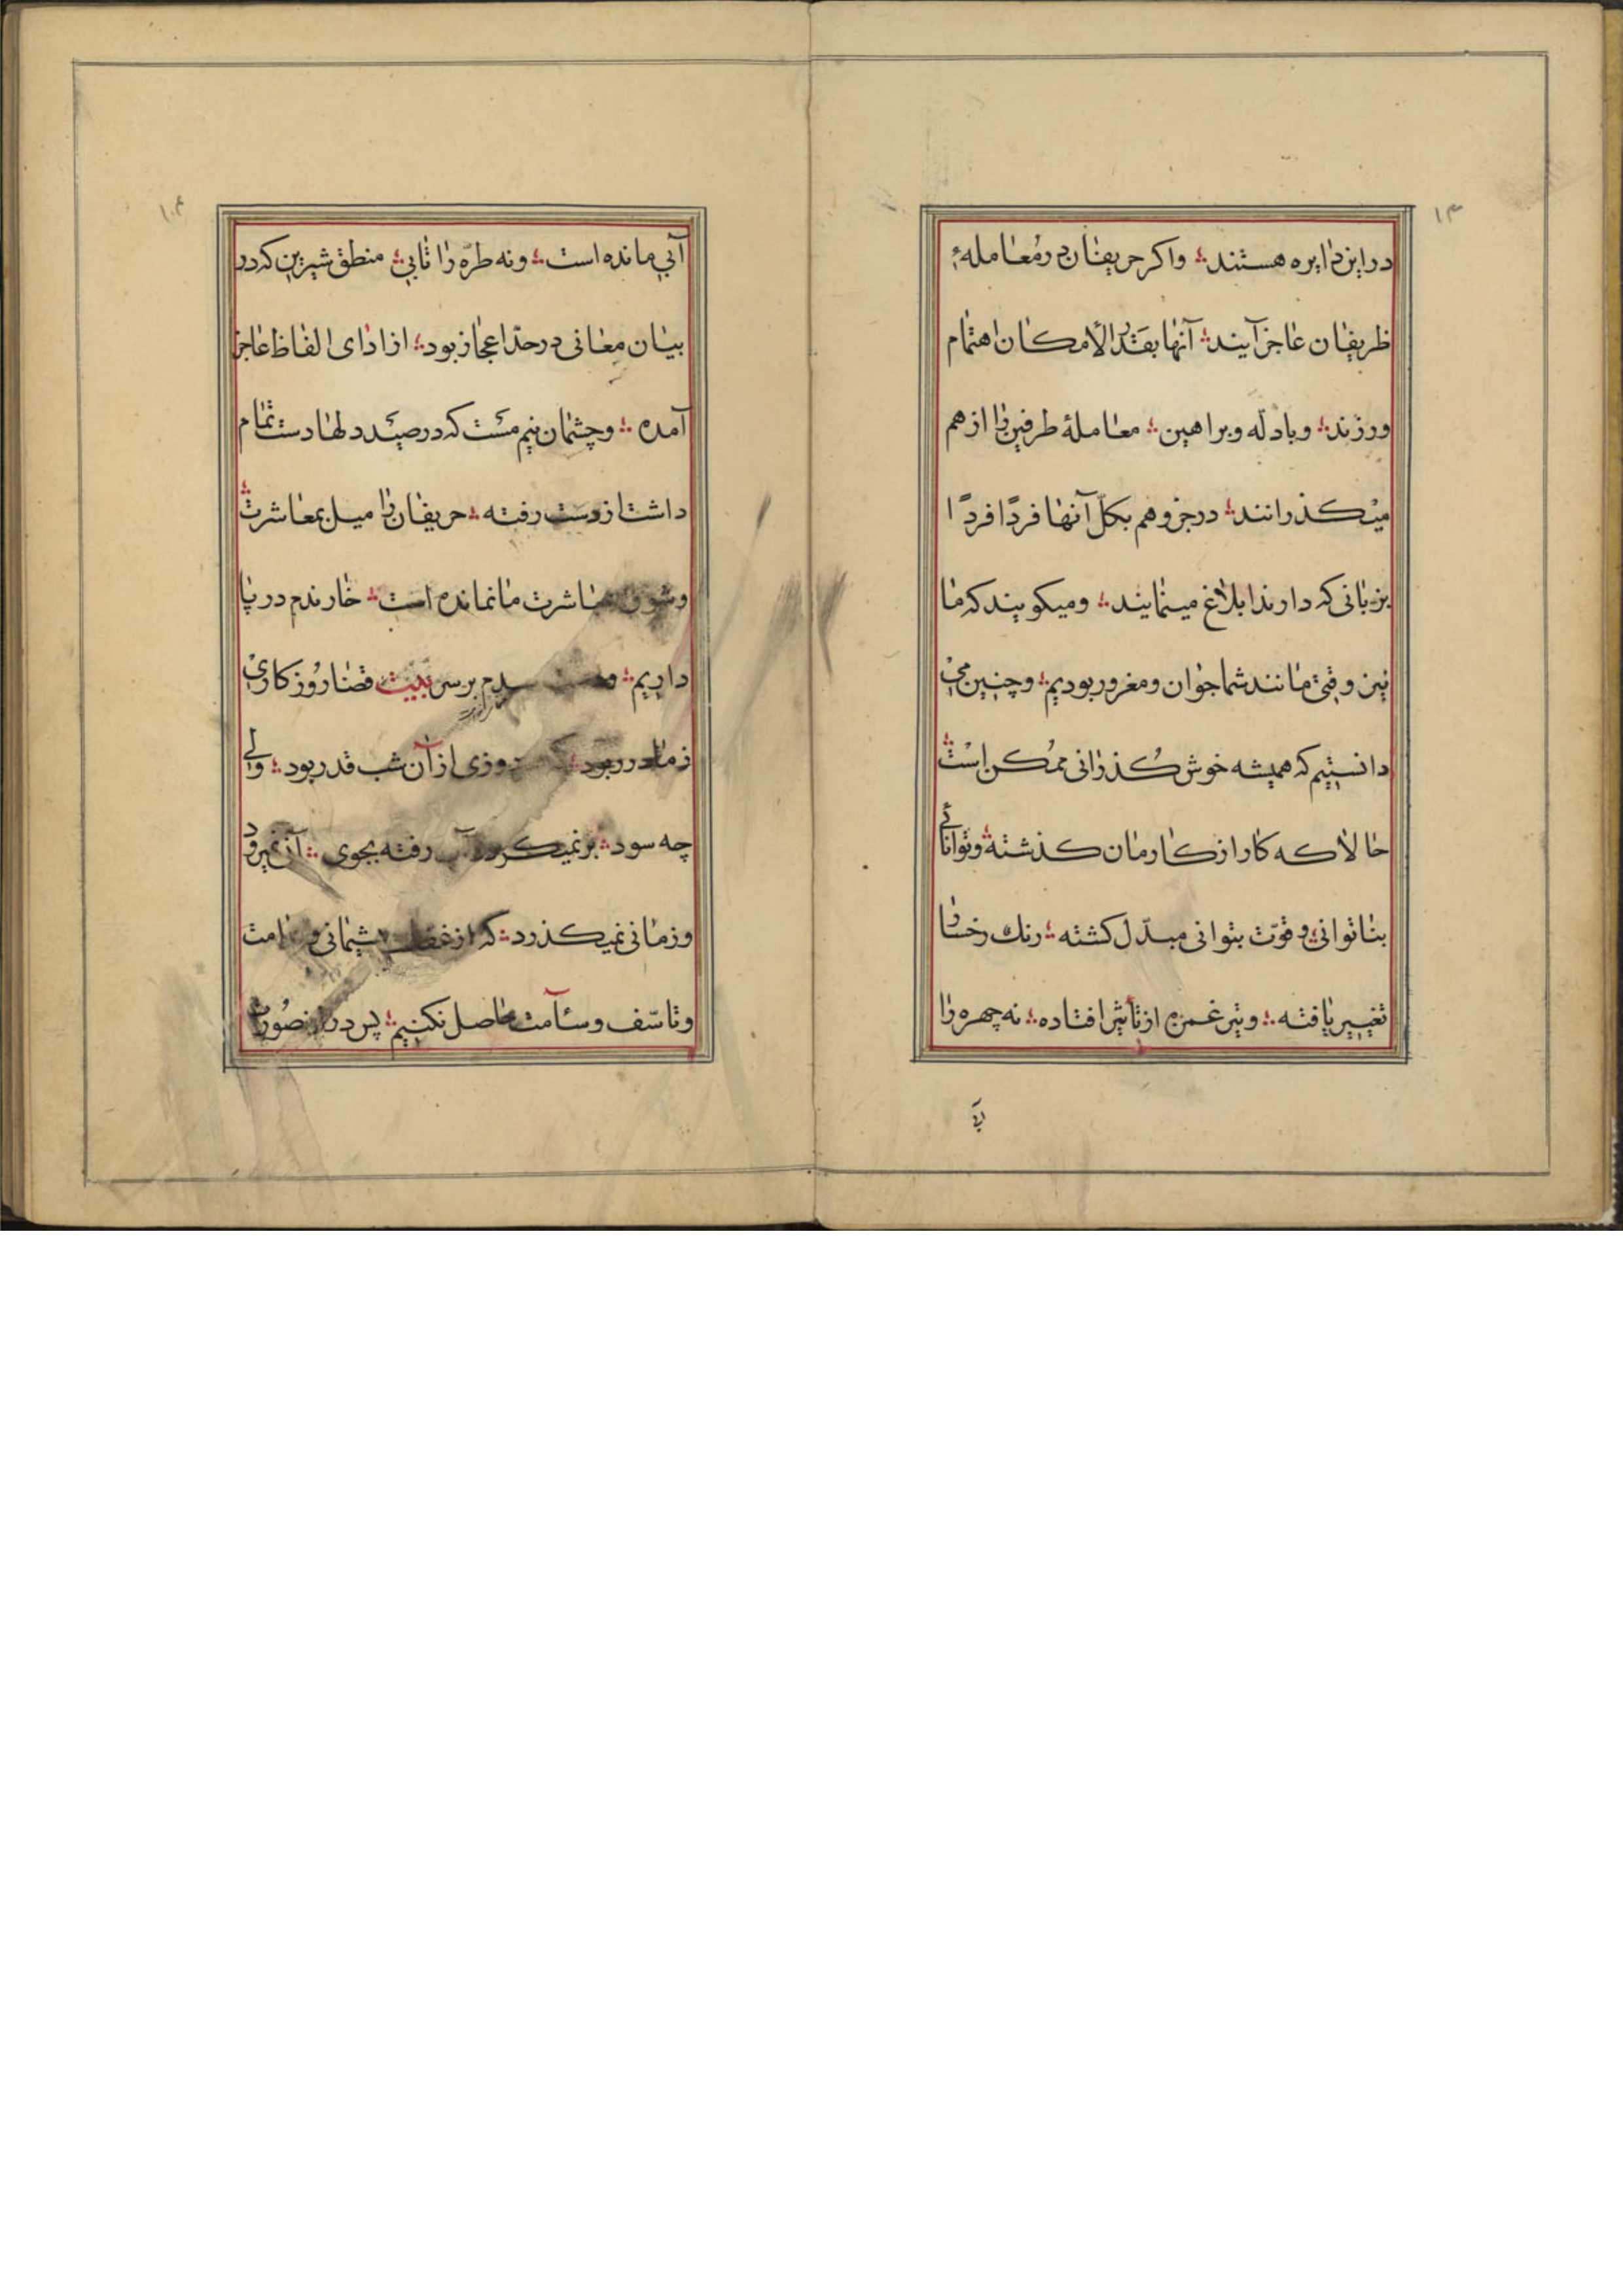 ۱۳
در این دایره هستند؛ واکر حریفان در معامله‌ٔ
ظریفان عاجز آیند؛ آنها بقدر الأمکان اهتمام
ورزند؛ و بادله و براهین؛ معاملهٔ طرفین را از هم
میکذرانند؛ در جزو هم بکلّ آنها فردًا فردًا
بزبانی که دارند ابلاغ مینمایند؛ و میکویند که ما
نیز وقتی مانند شما جوان و مغرور بودیم؛ و چنین می
دانستیم که همیشه خوش کذرانی ممکن است؛
حالا که کار از کارمان کذشته؛ و توانائی
بناتوانی؛ و قوّت بنوانی مبدّل کشته؛ رنك رخسار
تغییر یافته؛ و تیر غمزه از تأثیر افتاده؛ نه چهره را
آبی
آبی مانده است؛ و نه طرّه را تابی؛ منطق شیرین که در
بیان معانی در حدّ اعجاز بود؛ از ادای الفاظ عاجز
آمده؛ و چشمان نیم مست که در صید دلها دست تمام
داشت از دست رفته؛ حریفان را میل بمعاشرت
و شوق مباشرت ما نمانده است؛ خار ندم در پا
داریم؛ و بر سر بیت قضا روزکاری
ز ما در ربود؛ که روزی از آن شب قدر بود؛ ولی
چه سود؛ برنمیکردد آب رفته بجوی؛ آنی نمیرود
و زمانی نمیکذرد؛ که از غفلت پشیمانی و ندامت
و تاسّف و سئآمت حاصل نکنیم؛ پس در این صورت